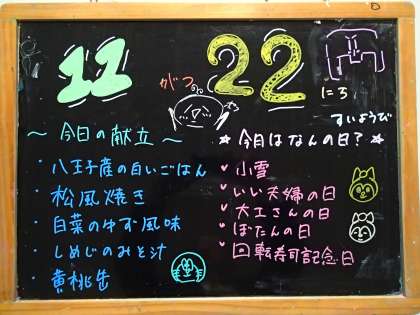 11 がつの 22 にち
すいようび
～ 今日の献立 ～
・八王子産の白いごはん
・松風焼き
・白菜のゆず風味
・しめじのみそ汁
・黄桃缶
★ 今日はなんの日？ ★
小雪
いい夫婦の日
大工さんの日
ぼたんの日
回転寿司記念日